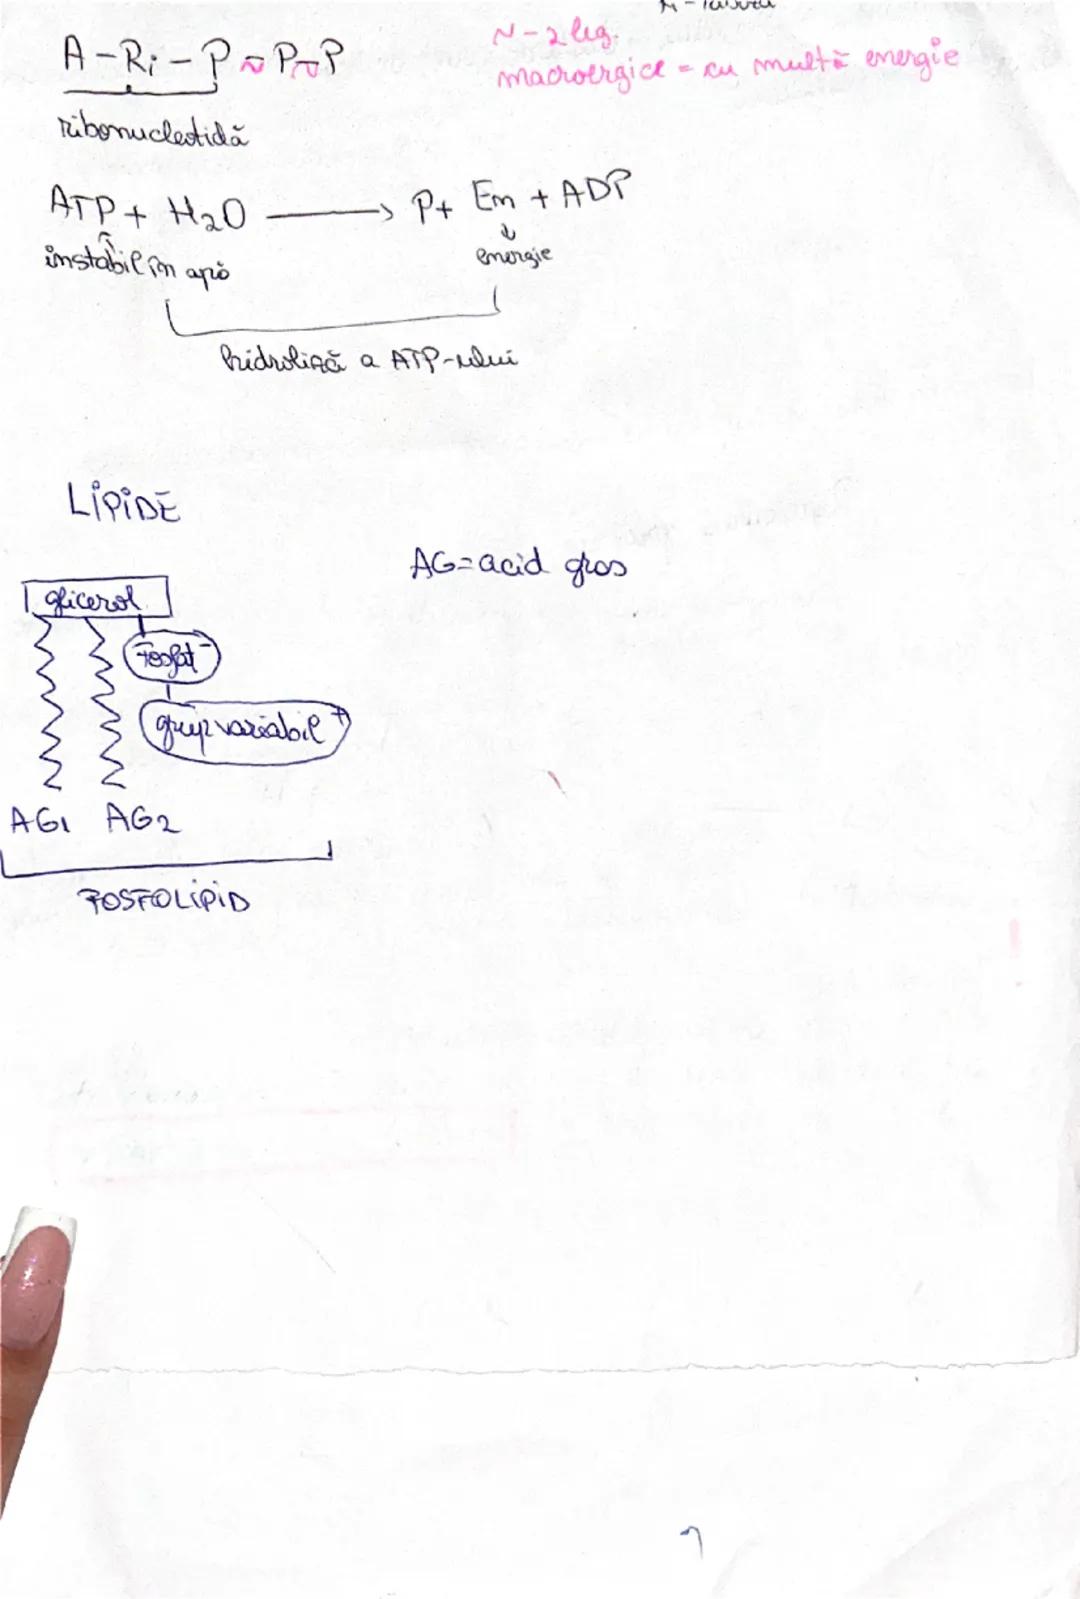 A-Ri-P~P~P
~-2 leg.
macroergice = cu multă energie
ribonucleotidă
ATP + H2O → P+ En + ADP
instabil în apă
energie
hidroliză a ATP-ului
LIPIDE
AG=acid gras
glicerol
Fosfat -
grup variabil +
AG1 AG2
FOSFOLIPID